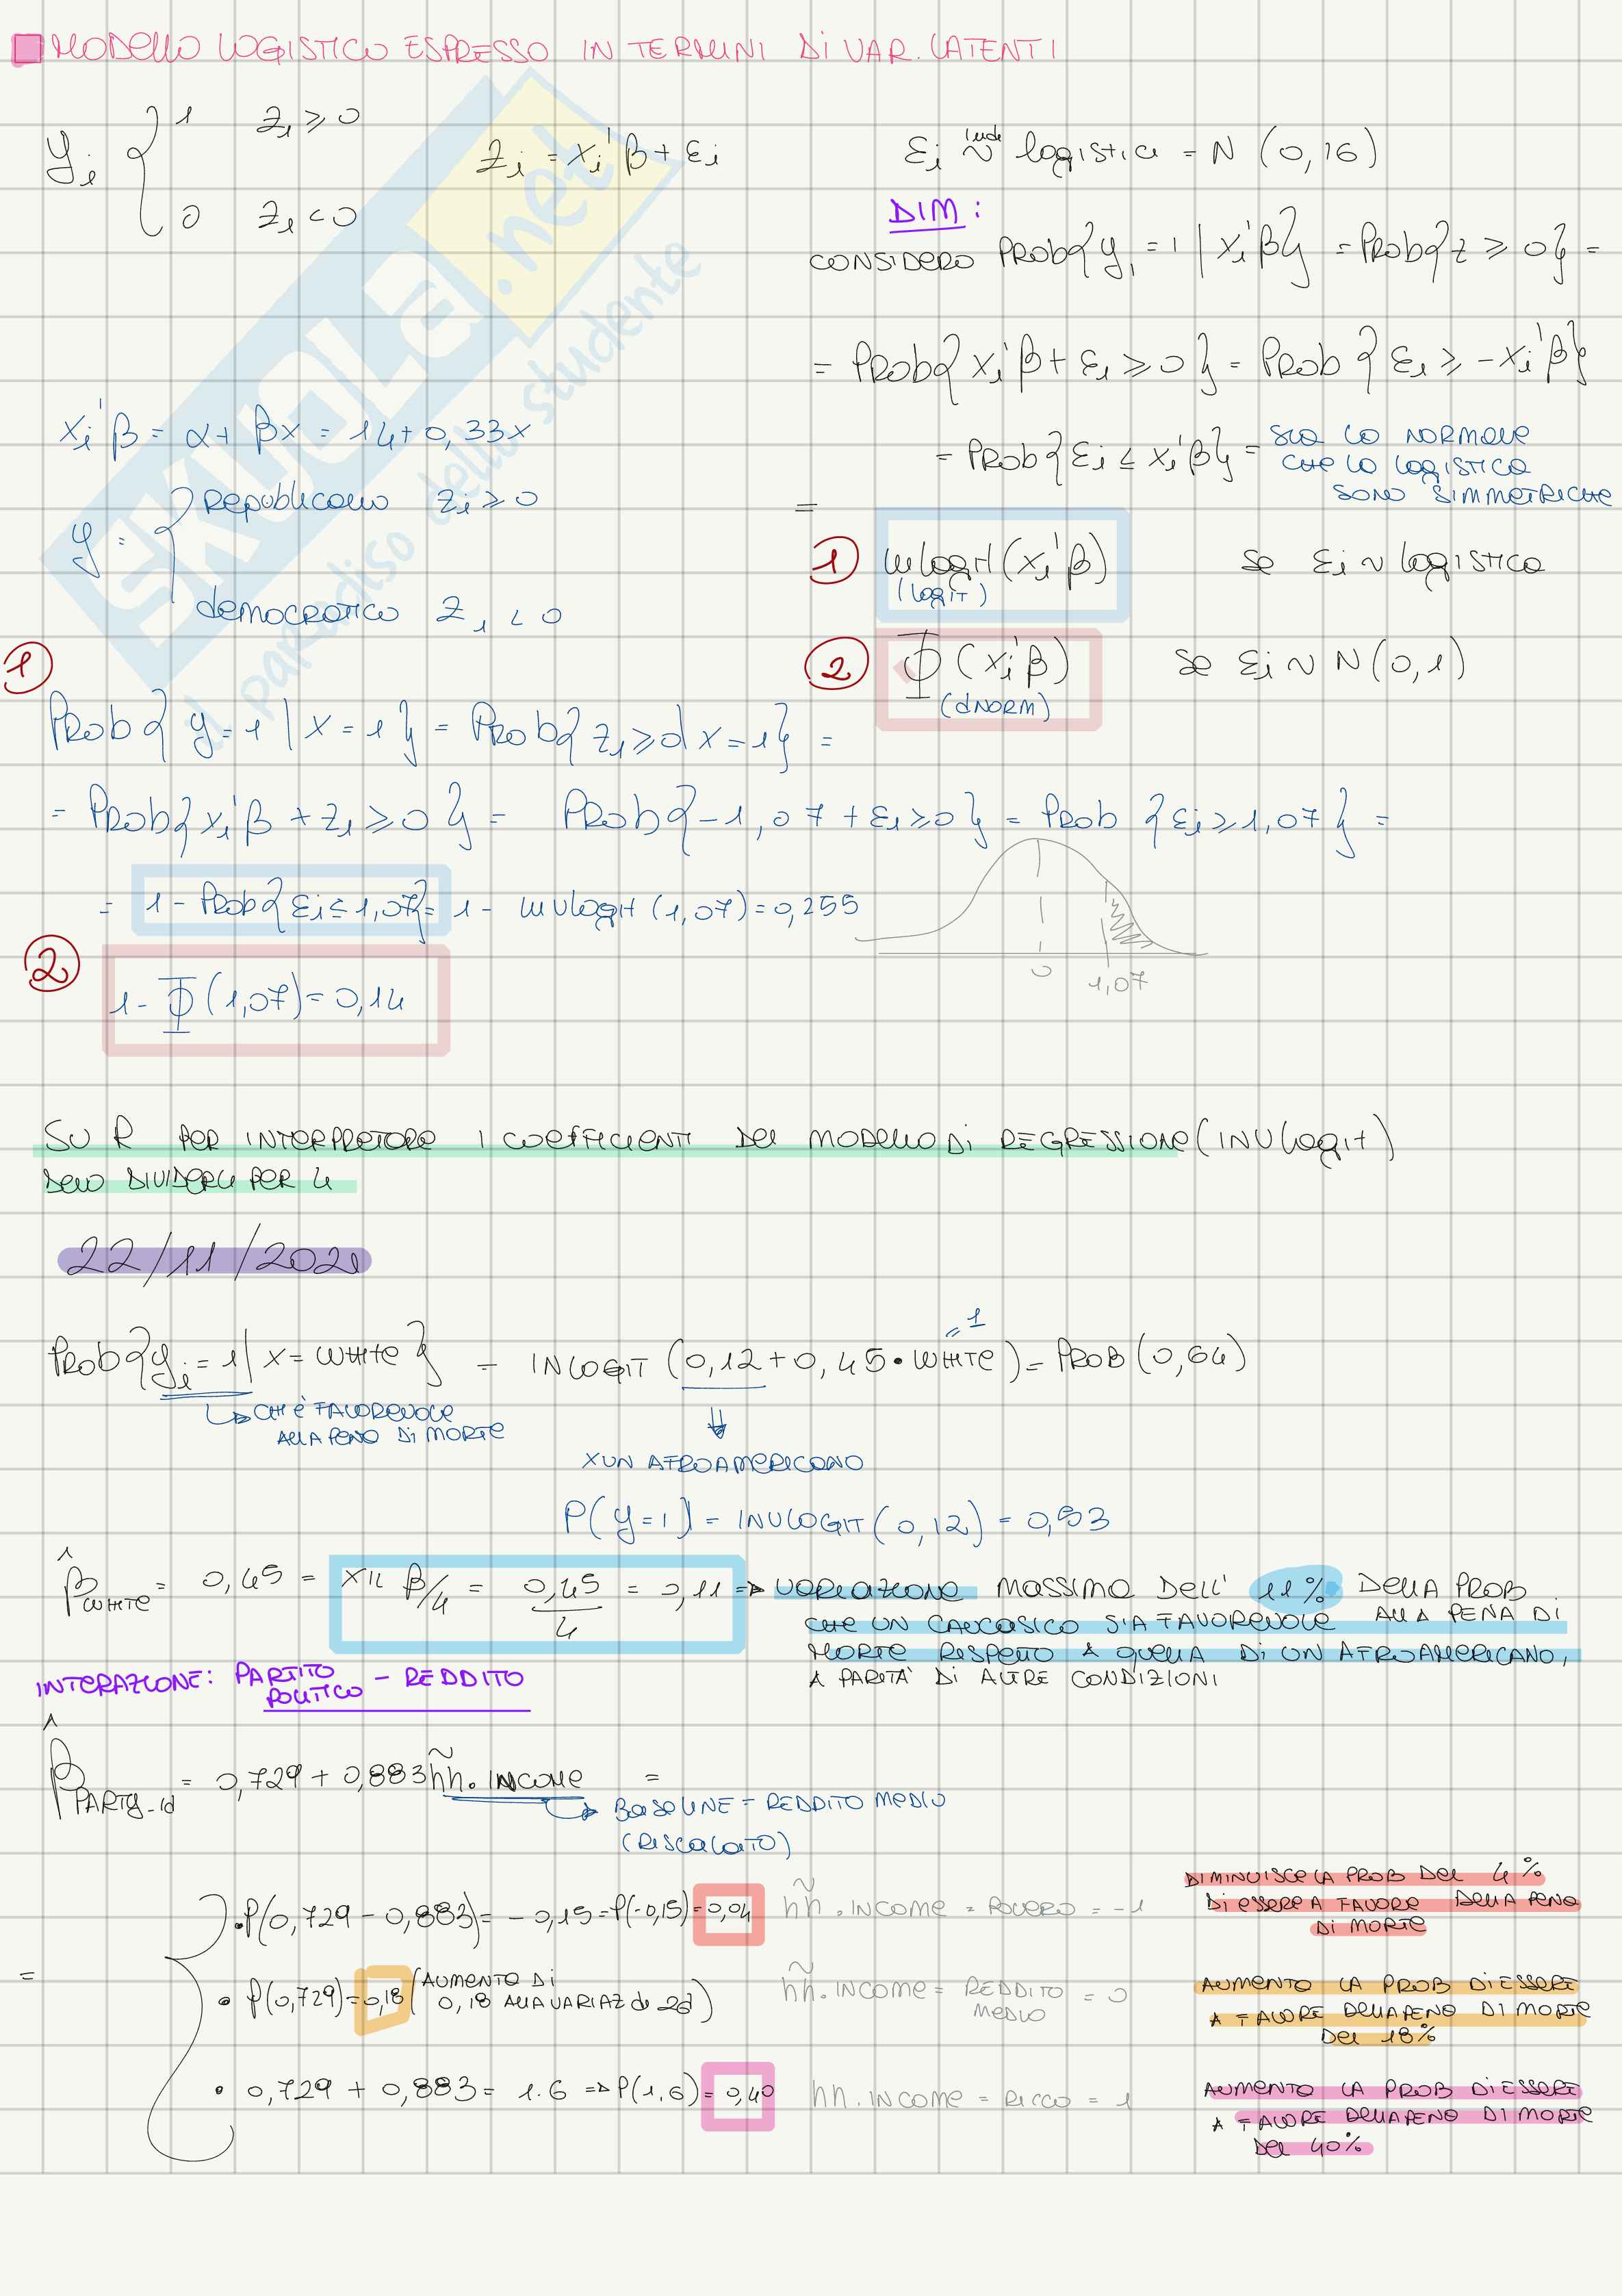 MODELLO LOGISTICO ESPRESSO IN TERMINI DI VAR. LATENTI
yi { 1 zi ≥ 0
0 zi < 0
zi = xi'β + εi
εi ~ind logistica = N (0,16)
DIM:
CONSIDERO PROB{yi = 1 | xi'β} = PROB{z ≥ 0} =
= PROB{xi'β + εi ≥ 0} = PROB {εi ≥ -xi'β}
= PROB{εi ≤ xi'β} = SIA LA NORMALE
CHE LA LOGISTICA
SONO SIMMETRICHE
=
1) invlogit(xi'β) se εi ~ logistica
(logit)
2) Φ(xi'β) se εi ~ N(0,1)
(dNORM)
xi'β = α + βx = 14 + 0,33x
y = { republicano zi ≥ 0
democratico zi < 0
1
PROB{y=1 | x=1} = PROB{zi ≥ 0 | x=1} =
= PROB{xi'β + zi ≥ 0} = PROB{-1,07 + εi ≥ 0} = PROB {εi ≥ 1,07} =
= 1 - PROB{εi ≤ 1,07} = 1 - invlogit (1,07) = 0,255
0 1,07
2
1 - Φ(1,07) = 0,14
SU R PER INTERPRETARE I COEFFICIENTI DEL MODELLO DI REGRESSIONE (INVlogit)
DEVO DIVIDERLI PER 4
22/11/2021
PROB{yi = 1 | x = WHITE} = INLOGIT (0,12 + 0,45 • WHITE) = PROB(0,64)
= 1
↳ CHI È FAVOREVOLE
ALLA PENA DI MORTE
↓
X UN AFROAMERICANO
P(y=1) = INVLOGIT(0,12) = 0,53
β̂WHITE = 0,45 = XIL β/4 = 0,45/4 = 0,11 → VARIAZIONE MASSIMA DELL' 11% DELLA PROB
CHE UN CAUCASICO SIA FAVOREVOLE ALLA PENA DI
MORTE RISPETTO A QUELLA DI UN AFROAMERICANO,
A PARITÀ DI ALTRE CONDIZIONI
INTERAZIONE: PARTITO POLITICO - REDDITO
β̂PARTY_id = 0,729 + 0,883 h̃h. INCOME =
↳ BASELINE = REDDITO MEDIO
(RISCALATO)
= { • P(0,729 - 0,883) = -0,15 = P(-0,15) = 0,04 h̃h. INCOME = POVERO = -1
DIMINUISCE LA PROB DEL 4%
DI ESSERE A FAVORE DELLA PENA
DI MORTE
• P(0,729) = 0,18 (AUMENTO DI
0,18 ALLA VARIAZ di 2σ)
h̃h. INCOME = REDDITO MEDIO = 0
AUMENTO LA PROB DI ESSERE
A FAVORE DELLA PENA DI MORTE
DEL 18%
• 0,729 + 0,883 = 1.6 => P(1,6) = 0,40 hh. INCOME = RICCO = 1
AUMENTO LA PROB DI ESSERE
A FAVORE DELLA PENA DI MORTE
DEL 40%
SKUOLA.net
il paradiso dello studente